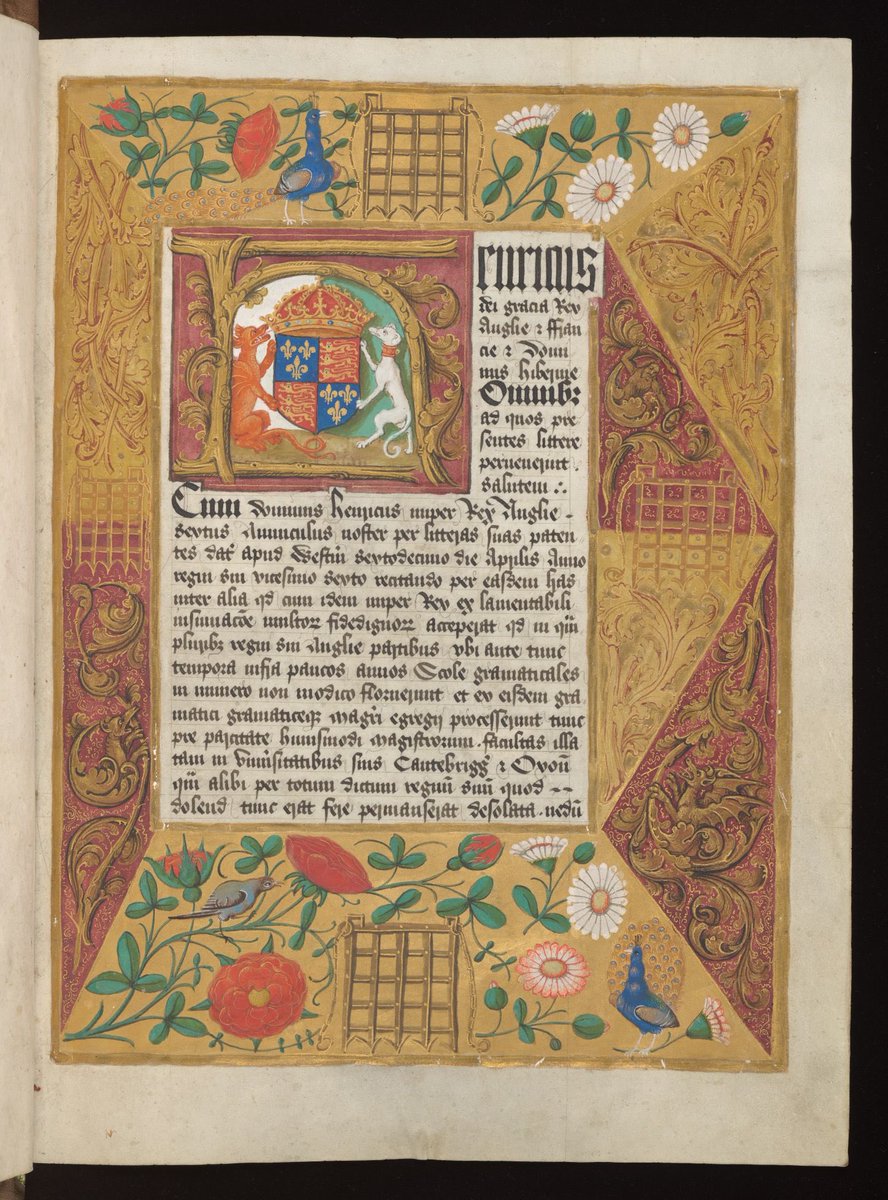 Henricus
dei gracia Rex
Anglie & ffran
cie & Domi
nus hibernie
Omnib:
ad quos pre
sentes littere
peruenerint
salutem :.
Cum Dominus henricus nuper Rex Anglie
sextus Auunculus noster per litteras suas paten
tes dat̄ apud Westm̄ sextodecimo die Aprilis Anno
regni sui vicesimo sexto recitando per easdem has
inter alia qd cum idem nuper Rex ex lamentabili
insinuacōe multoꝝ fidedignoꝝ acceperat qd in
pluribꝫ regni sui Anglie partibus vbi ante tunc
tempora infra paucos annos Scole gramaticales
in numero non modico floruerunt et ex eisdem gra
matici gramaticeqꝫ magr̄i egregij processerunt tunc
pre parcitate huiusmodi magistrorum facultas illa
tam in Vniūsitatibus suis Cantebrigḡ & Oxon̄
qm̄ alibi per totum dictum regnū suū quod --
dolend tunc erat fere permanserat desolata . nedū